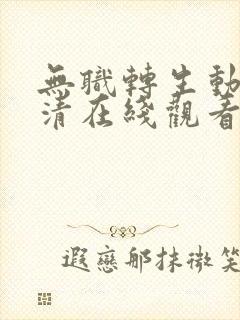 無職轉生動
清在綫觀看
遐戀那抹微笑